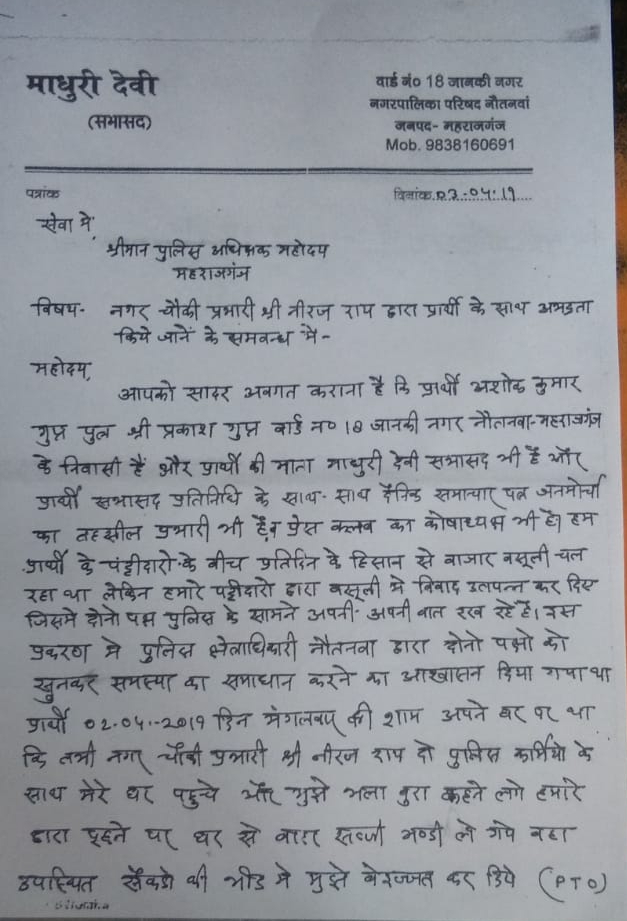 माधुरी देवी
(सभासद)
वार्ड नं० 18 जानकी नगर
नगरपालिका परिषद नौतनवां
जनपद- महराजगंज
Mob. 9838160691
पत्रांक
दिनांक 03-04-19
सेवा में,
श्रीमान पुलिस अधिक्षक महोदय
महराजगंज
विषय- नगर चौकी प्रभारी श्री नीरज राय द्वारा प्रार्थी के साथ अभद्रता
किये जानें के सम्बन्ध में-
महोदय,
आपको सादर अवगत कराना है कि प्रार्थी अशोक कुमार
गुप्त पुत्र श्री प्रकाश गुप्त वार्ड न० 18 जानकी नगर नौतनवा-महराजगंज
के निवासी हैं और प्रार्थी की माता माधुरी देवी सभासद भी हैं और
प्रार्थी सभासद प्रतिनिधि के साथ-साथ दैनिक समाचार पत्र जनमोर्चा
का तहसील प्रभारी भी है व प्रेस क्लब का कोषाध्यक्ष भी है। हम
प्रार्थी के पट्टीदारो के बीच प्रतिदिन के हिसाब से बाजार वसूली चल
रहा था लेकिन हमारे पट्टीदारो द्वारा वसूली मे विवाद उत्पन्न कर दिए
जिसमे दोनो पक्ष पुलिस के सामने अपनी-अपनी बात रख रहे हैं। इस
प्रकरण मे पुलिस क्षेत्राधिकारी नौतनवा द्वारा दोनो पक्षो को
सुनकर समस्या का समाधान करने का आश्वासन दिया गया था
प्रार्थी 02-04-2019 दिन मंगलवार की शाम अपने घर पर था
कि तभी नगर चौकी प्रभारी श्री नीरज राय दो पुलिस कर्मियो के
साथ मेरे घर पहुचे और मुझे भला बुरा कहने लगे हमारे
द्वारा पूछने पर घर से बाहर सब्जी मण्डी ले गये वहा
उपस्थित सैकडो की भीड मे मुझे बेइज्जत कर दिये (PTO)